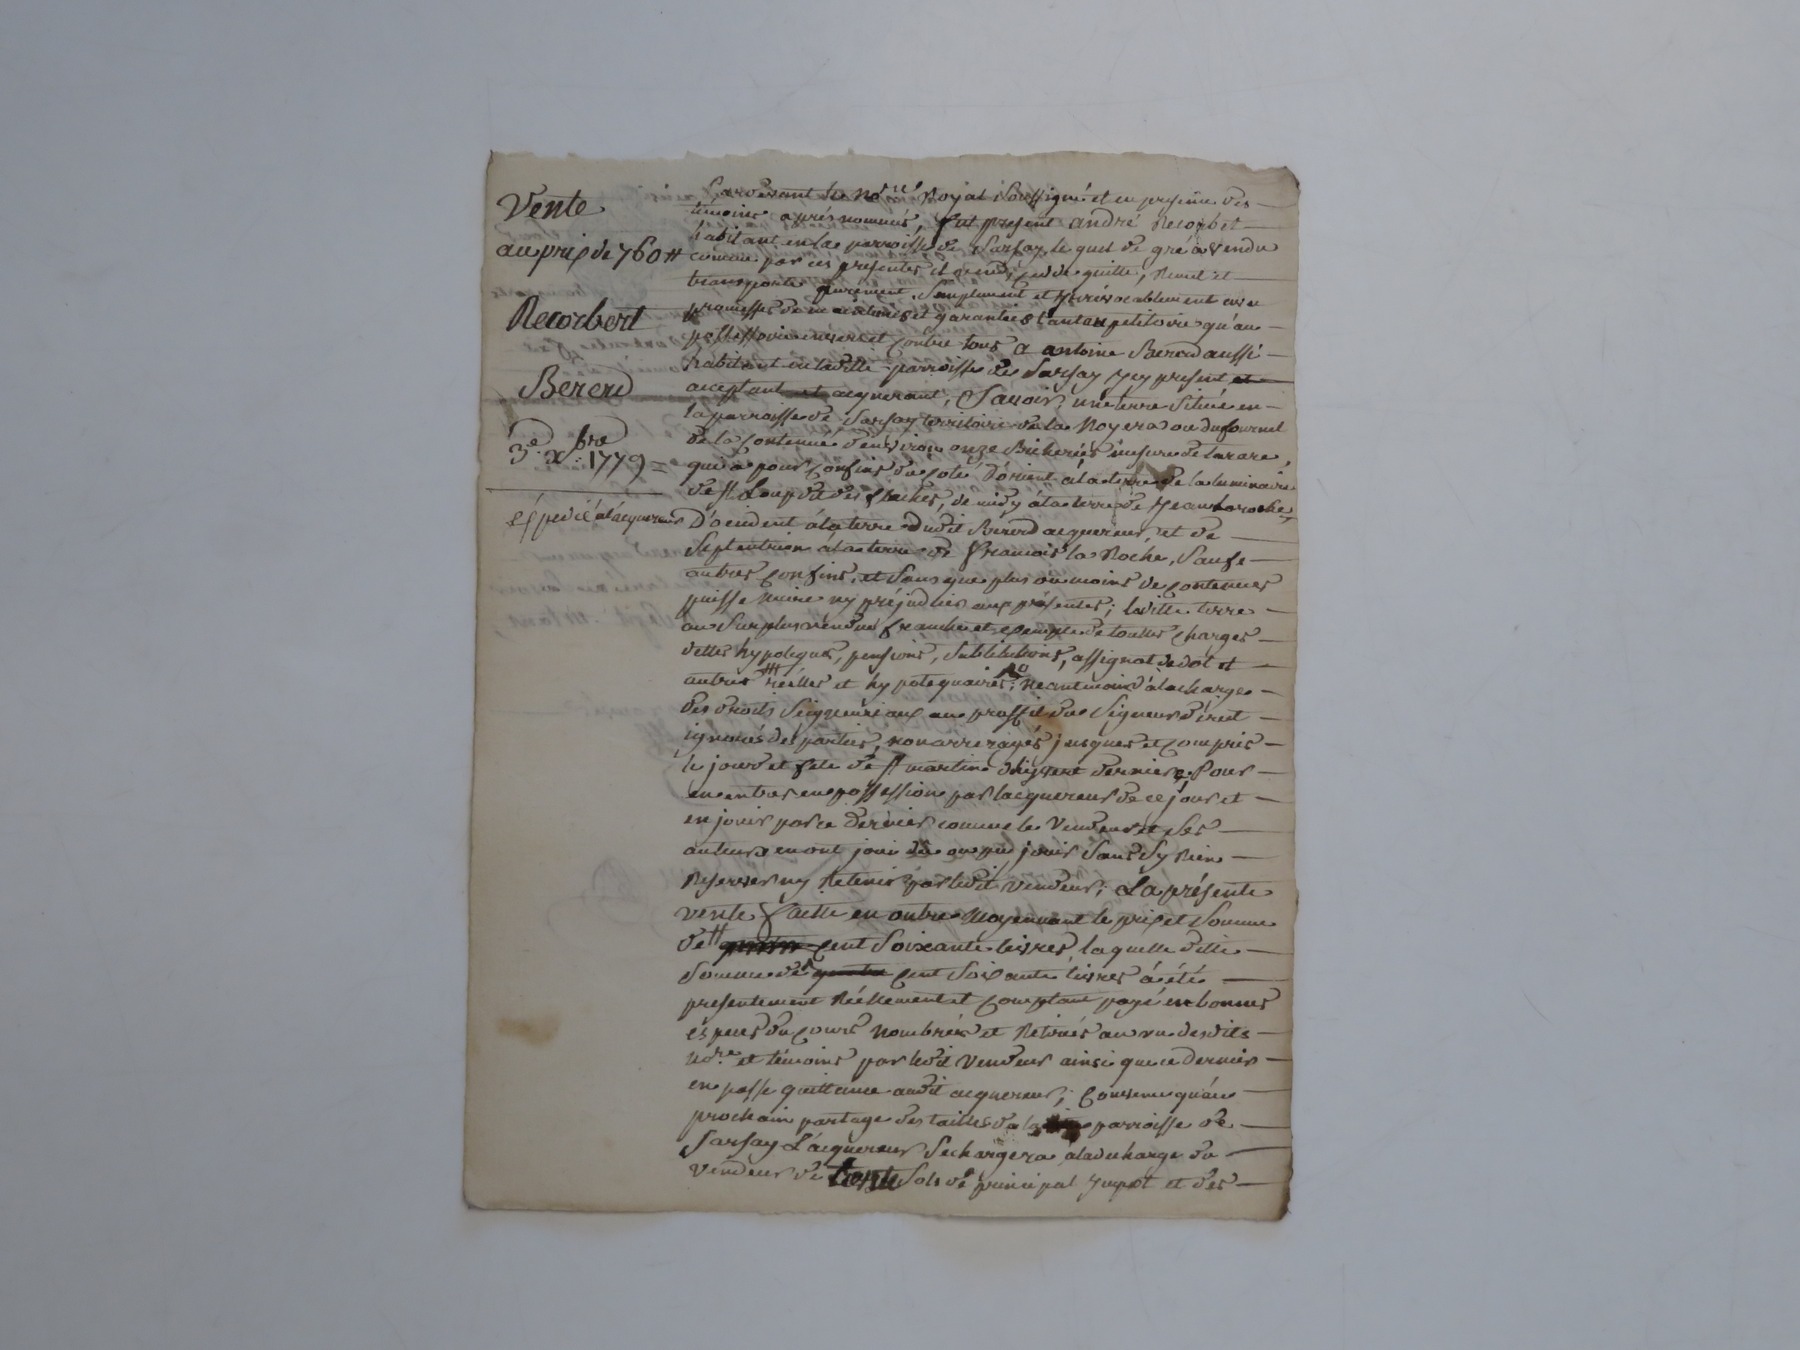 Vente
au prix de 760 ₶
Recorbert
Bererd
3e Xbre 1779
expedié à l'acquereur
Pardevant le Nre Royal soussigné et en presence des
témoins aprés nommés, fut present andré Recorbet
habitant en la parroisse de Sarsay, le quel de gré à vendu
comme par ces presentes il vend, cede quitte, Remet et
transporte purement, Simplement et Yrrévocablement avec
promesses de maintenir et garantie tant au petitoire qu'au
possessoire envers et contre tous a antoine Bererd aussi
habitant en ladite parroisse de Sarsay Yey present et
acceptant et acquerant, Savoir, une terre située en
la parroisse de Sarsay territoire de la Noyera ou du fournel
de la contenue d'environ onze Bicherées mesure de tarare,
qui à pour confins du coté d'orient à la terre de la luminaire
de St Loup des , de midy à la terre de Jean laroche,
D'occident à la terre dudit Bererd acquereur, et de
Septentrion à la terre de francois la Roche, Saufs
autres confins, et sans que plus ou moins de contenues
puisse nuire ny préjudicier aux présentes; ladite terre
au Surplus vendue franche et exempte de touttes charges
dettes hypoteques, pensions, Substitutions, assignat de dot et
autres réelles et hypotequaires; Neantmoins à la charge
des droits Seigneuriaux au proffit du Seigneur direct
ignorés des parties, non arreragés jusques et compris
le jour et fete de St martin d'hyvert dernier; Pour
en entrer en possession par l'acquereur de ce jour et
en jouir par ce dernier comme le Vendeur et Ses
auteurs en ont joui du ou pu jouir Sans Sy Rien
Reserver ny Retenir par ledit vendeur; La présente
vente faitte en outre Moyennant le prix et Somme
de cent Soixante livres, la quelle ditte
Somme de cent Soixante livres à été
presentement Réellement et comptant payé en bonnes
éspeces du cours Nombrées et Retirées au vu desdits
Nore et témoins par ledit Vendeur ainsi que ce dernier
en passe quittance audit acquereur; Convenu qu'au
prochain partage des tailles de la parroisse de
Sarsay L'acquereur Se chargera à la decharge du
vendeur de trente Sols de principal Ympot et des